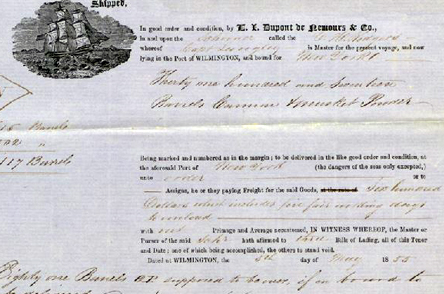 Shipped,
In good order and condition, by E. I. Dupont de Nemours & Co.,
in and upon the Schooner called the
whereof Capt is Master for the present voyage, and now
lying in the Port of WILMINGTON, and bound for New York
Thirty one hundred and seventeen
Barrels Cannon & musket Powder
Barrels
117 Barrels
Being marked and numbered as in the margin; to be delivered in the like good order and condition, at
the aforesaid Port of New York (the dangers of the seas only excepted,)
unto order or to
Assigns, he or they paying Freight for the said Goods, at the rate of Two hundred
Dollars which includes five working days
to unload
with out Primage and Average accustomed, IN WITNESS WHEREOF, the Master or
Purser of the said Schr hath affirmed to three Bills of Lading, all of this Tenor
and Date; one of which being accomplished, the others to stand void.
Dated at WILMINGTON, the 5th day of May 1855
Eighty one Barrels supposed to be if on board to